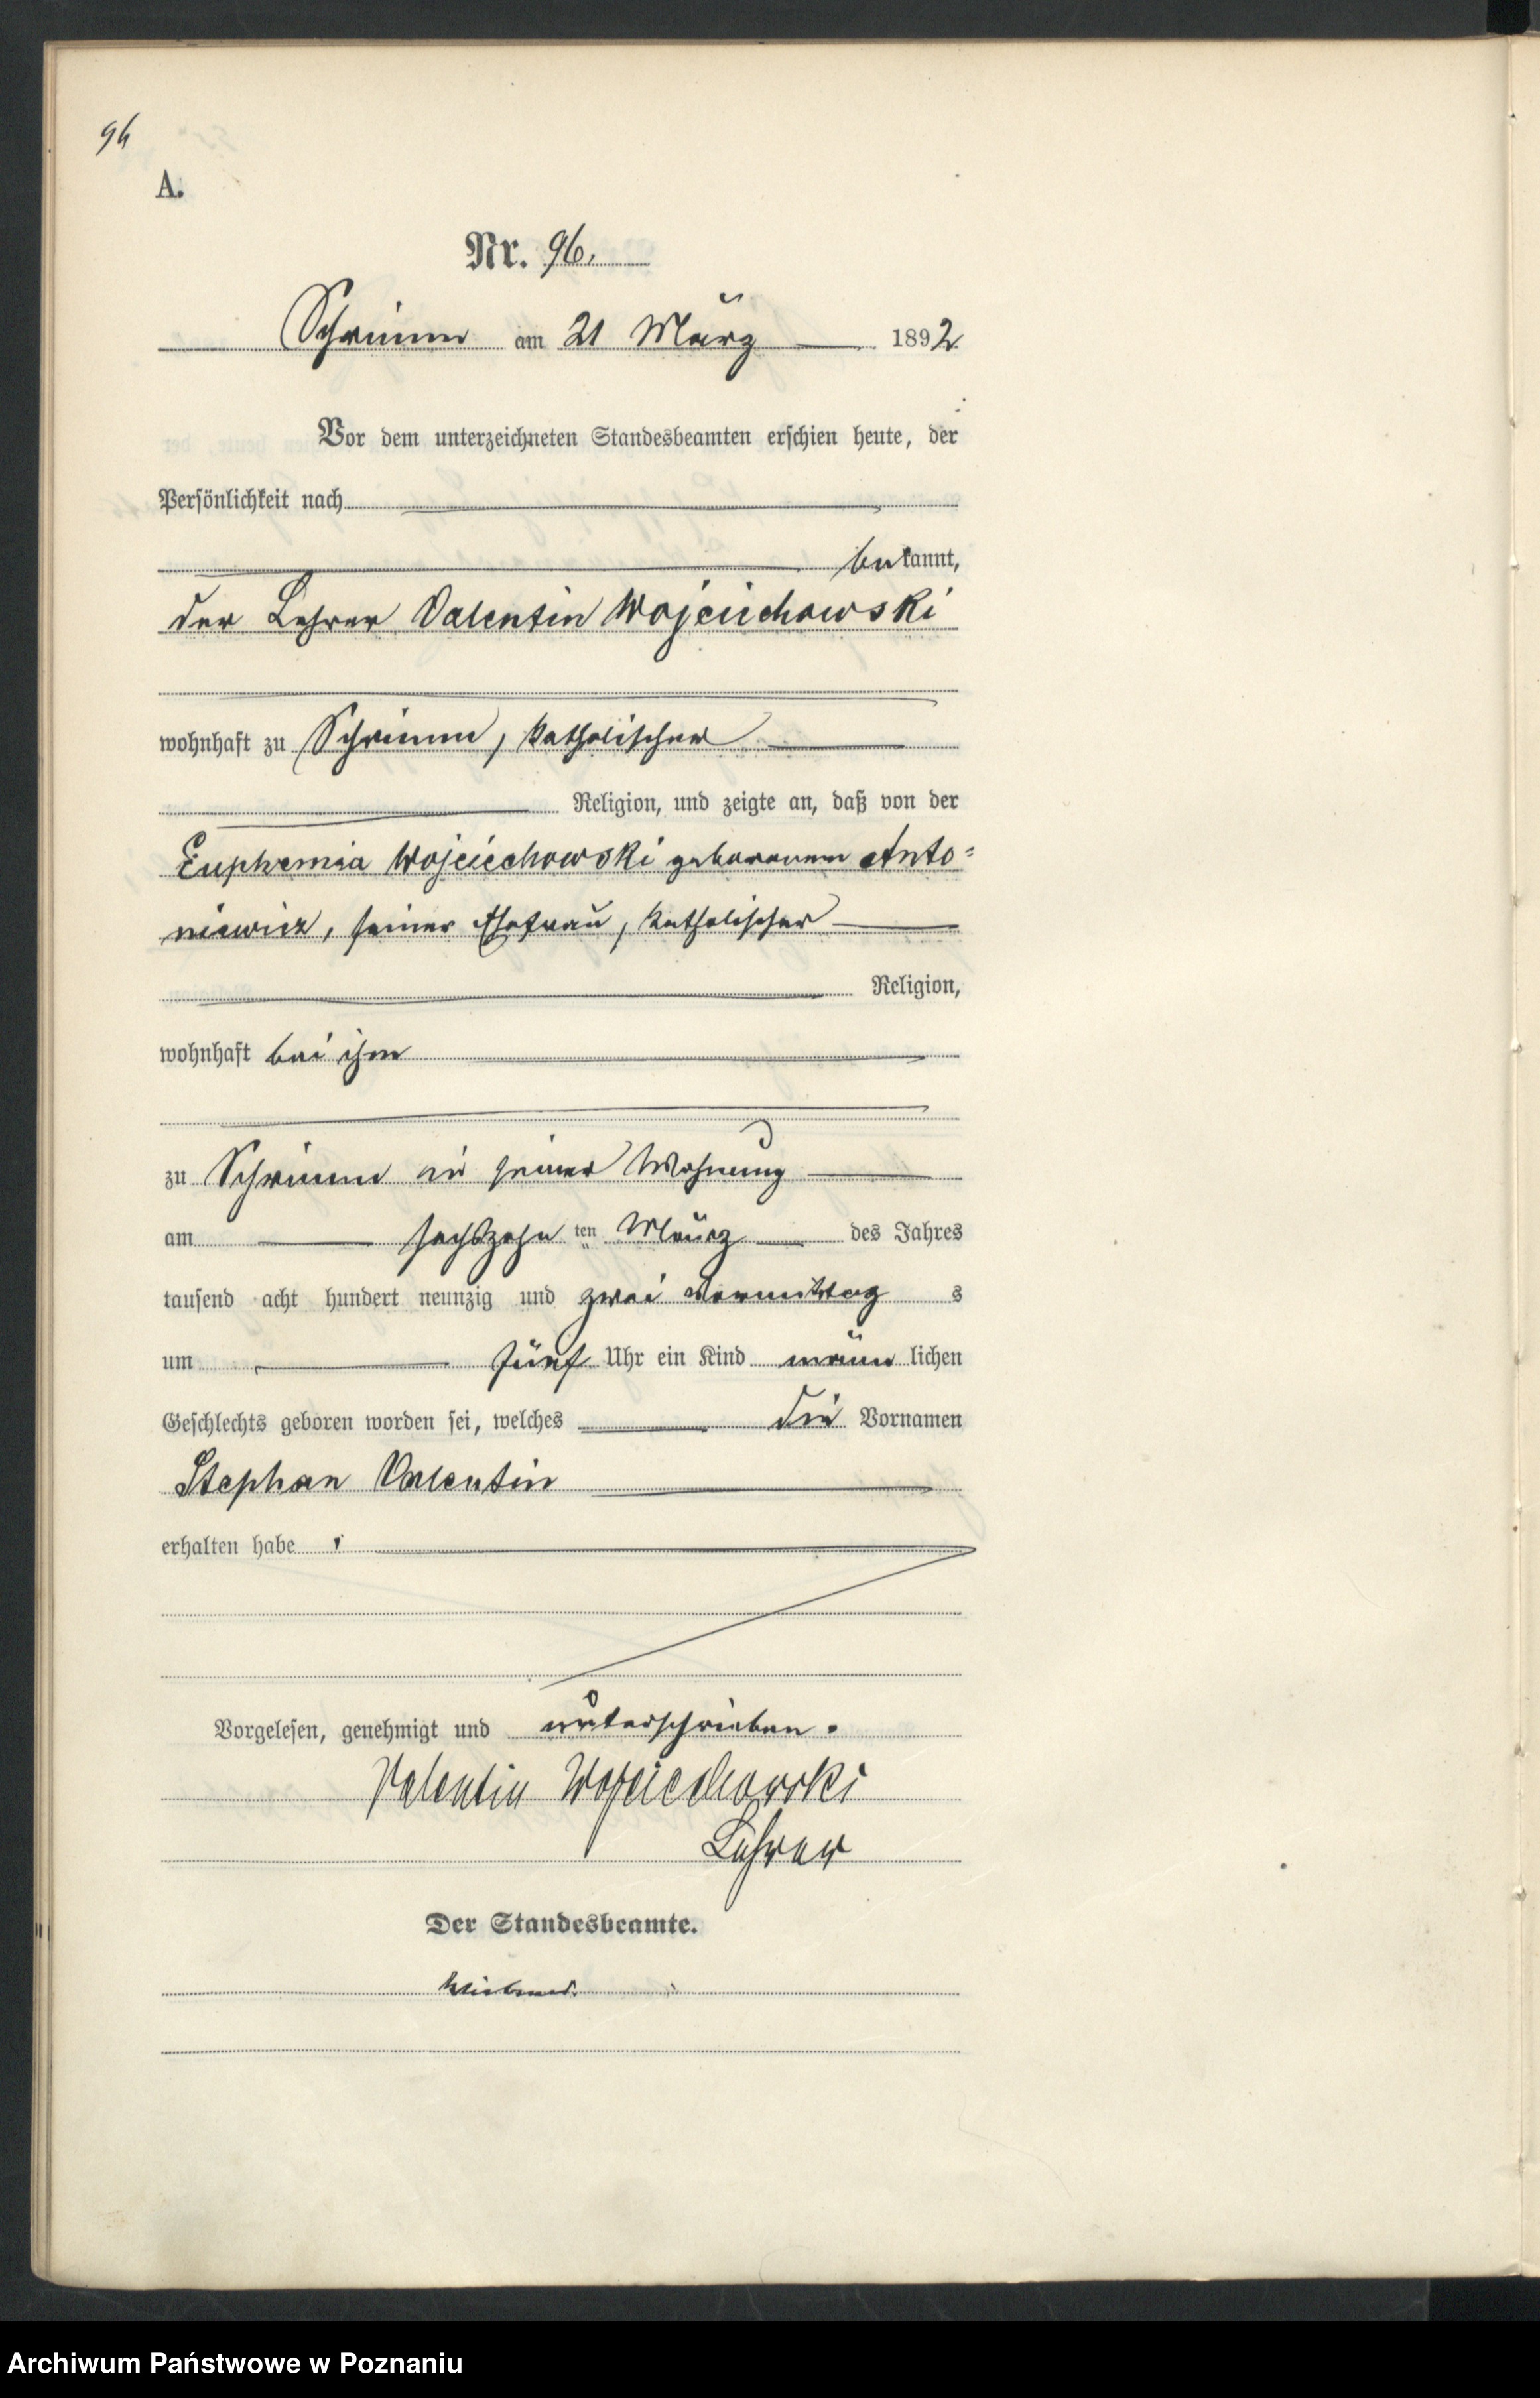 96
A.
Nr. 96.
Schrimm am 21 März 1892.
Vor dem unterzeichneten Standesbeamten erschien heute, der
Persönlichkeit nach
bekannt,
der Lehrer Valentin Wojciechowski
wohnhaft zu Schrimm, katholischer
Religion, und zeigte an, daß von der
Euphemia Wojciechowski geborenen Anto=
niewicz, seiner Ehefrau, katholischer
Religion,
wohnhaft bei ihm
zu Schrimm in seiner Wohnung
am sechszehn ten März des Jahres
tausend acht hundert neunzig und zwei Vormittag s
um fünf Uhr ein Kind männ lichen
Geschlechts geboren worden sei, welches die Vornamen
Stephan Valentin
erhalten habe.
Vorgelesen, genehmigt und unterschrieben.
Valentin Wojciechowski
Lehrer
Der Standesbeamte.
Archiwum Państwowe w Poznaniu